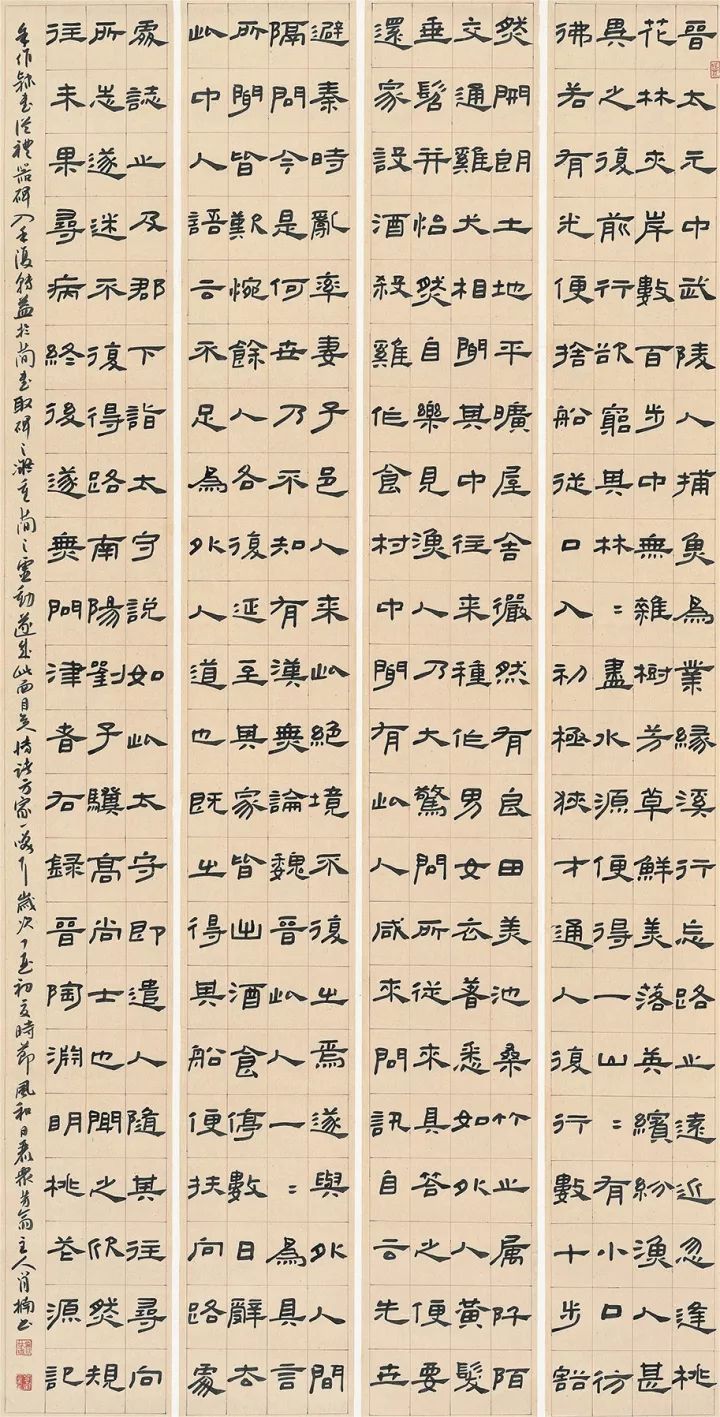 晉太元中武陵人捕魚為業緣溪行忘路之遠近忽逢桃
花林夾岸數百步中無雜樹芳草鮮美落英繽紛漁人甚
異之復前行欲窮其林〻盡水源便得一山〻有小口彷
彿若有光便捨船從口入初極狹才通人復行數十步豁
然開朗土地平曠屋舍儼然有良田美池桑竹之属阡陌
交通雞犬相聞其中往来種作男女衣著悉如外人黃髮
垂髫并怡然自樂見漁人乃大驚問所從來具答之便要
還家設酒殺雞作食村中聞有此人咸來問訊自云先世
避秦時亂率妻子邑人来此絕境不復出焉遂與外人間
隔問今是何世乃不知有漢無論魏晉此人一〻為具言
所聞皆歎惋餘人各復延至其家皆出酒食停數日辭去
此中人語云不足為外人道也既出得其船便扶向路處
處誌之及郡下詣太守說如此太守即遣人隨其往尋向
所志遂迷不復得路南陽劉子驥高尚士也聞之欣然規
往未果尋病終後遂無問津者右錄晉陶淵明桃花源記
余作隸書從禮器碑入手復轉益於簡書取碑之凝重簡之靈動遂成此面目矣諸方家一哂歲次丁酉初夏時節風和日麗主人肖楠書